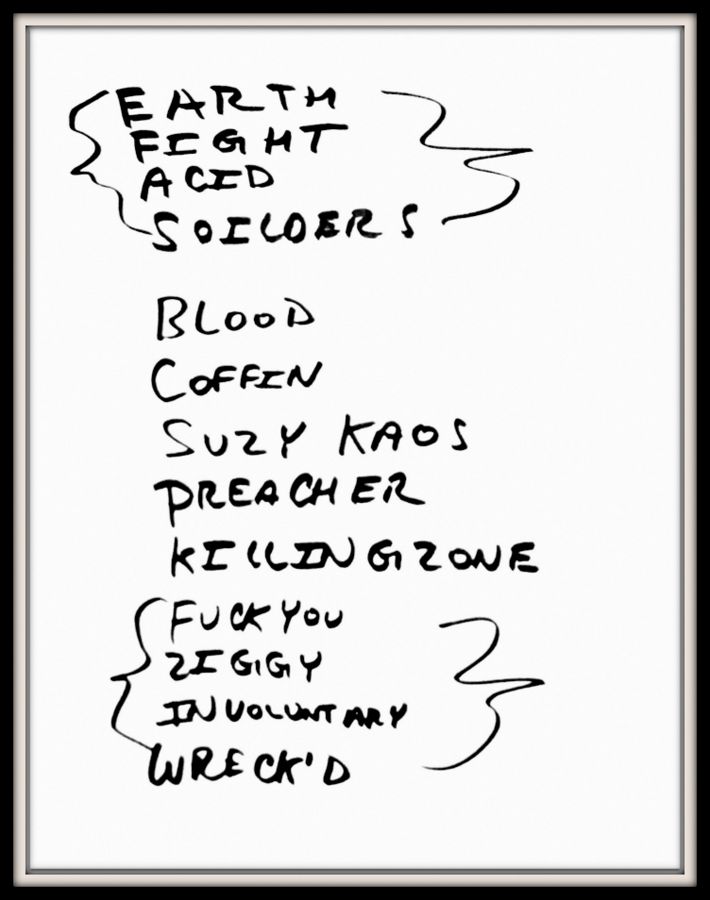 EARTH
FIGHT
ACID
SOILDERS
BLOOD
COFFIN
SUZY KAOS
PREACHER
KILLING ZONE
FUCK YOU
ZIGGY
INVOLUNTARY
WRECK'D